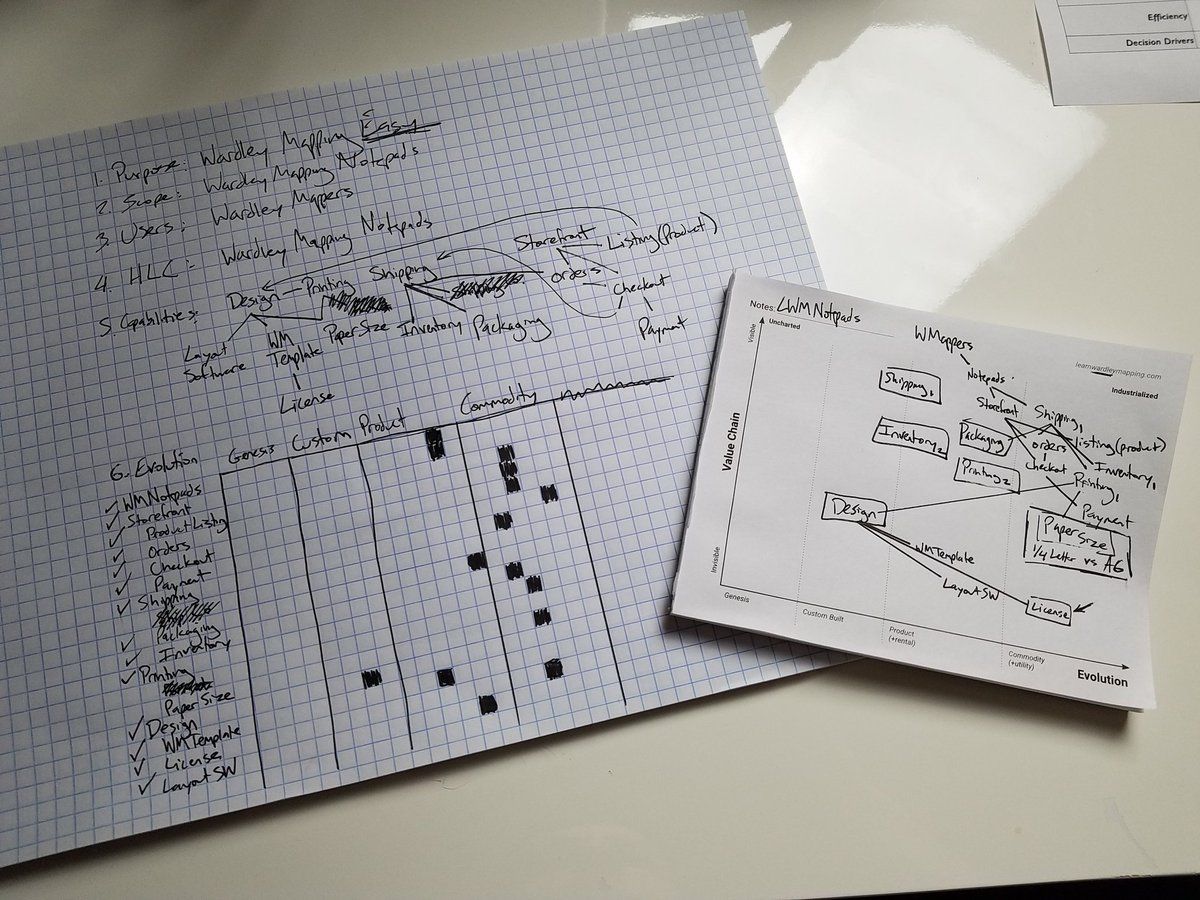 Efficiency
Decision Drivers
1. Purpose: Wardley Mapping Easy
2. Scope: Wardley Mapping Notepads
3. Users: Wardley Mappers
4. HLC: Wardley Mapping Notepads
5 Capabilities:
Design
Printing
Shipping
Storefront
Listing (Product)
Orders
Checkout
Payment
Layout Software
WM Template
License
Paper Size
Inventory
Packaging
6. Evolution
Genesis
Custom
Product
Commodity
✓ WM Notpads
✓ Storefront
✓ Product Listing
✓ Orders
✓ Checkout
✓ Payment
✓ Shipping
✓ Packaging
✓ Inventory
✓ Printing
Paper Size
✓ Design
✓ WM Template
✓ License
✓ Layout SW
Notes: LWM Notpads
learnwardleymapping.com
Uncharted
Industrialized
Visible
Value Chain
Invisible
WMappers
Notepads
Storefront
Shipping1
Shipping2
Packaging
Orders
Listing (product)
Inventory2
Inventory1
Checkout
Printing2
Printing1
Payment
Design
Paper Size
1/4 Letter vs A6
WM Template
Layout SW
License
Genesis
Custom Built
Product
(+rental)
Commodity
(+utility)
Evolution